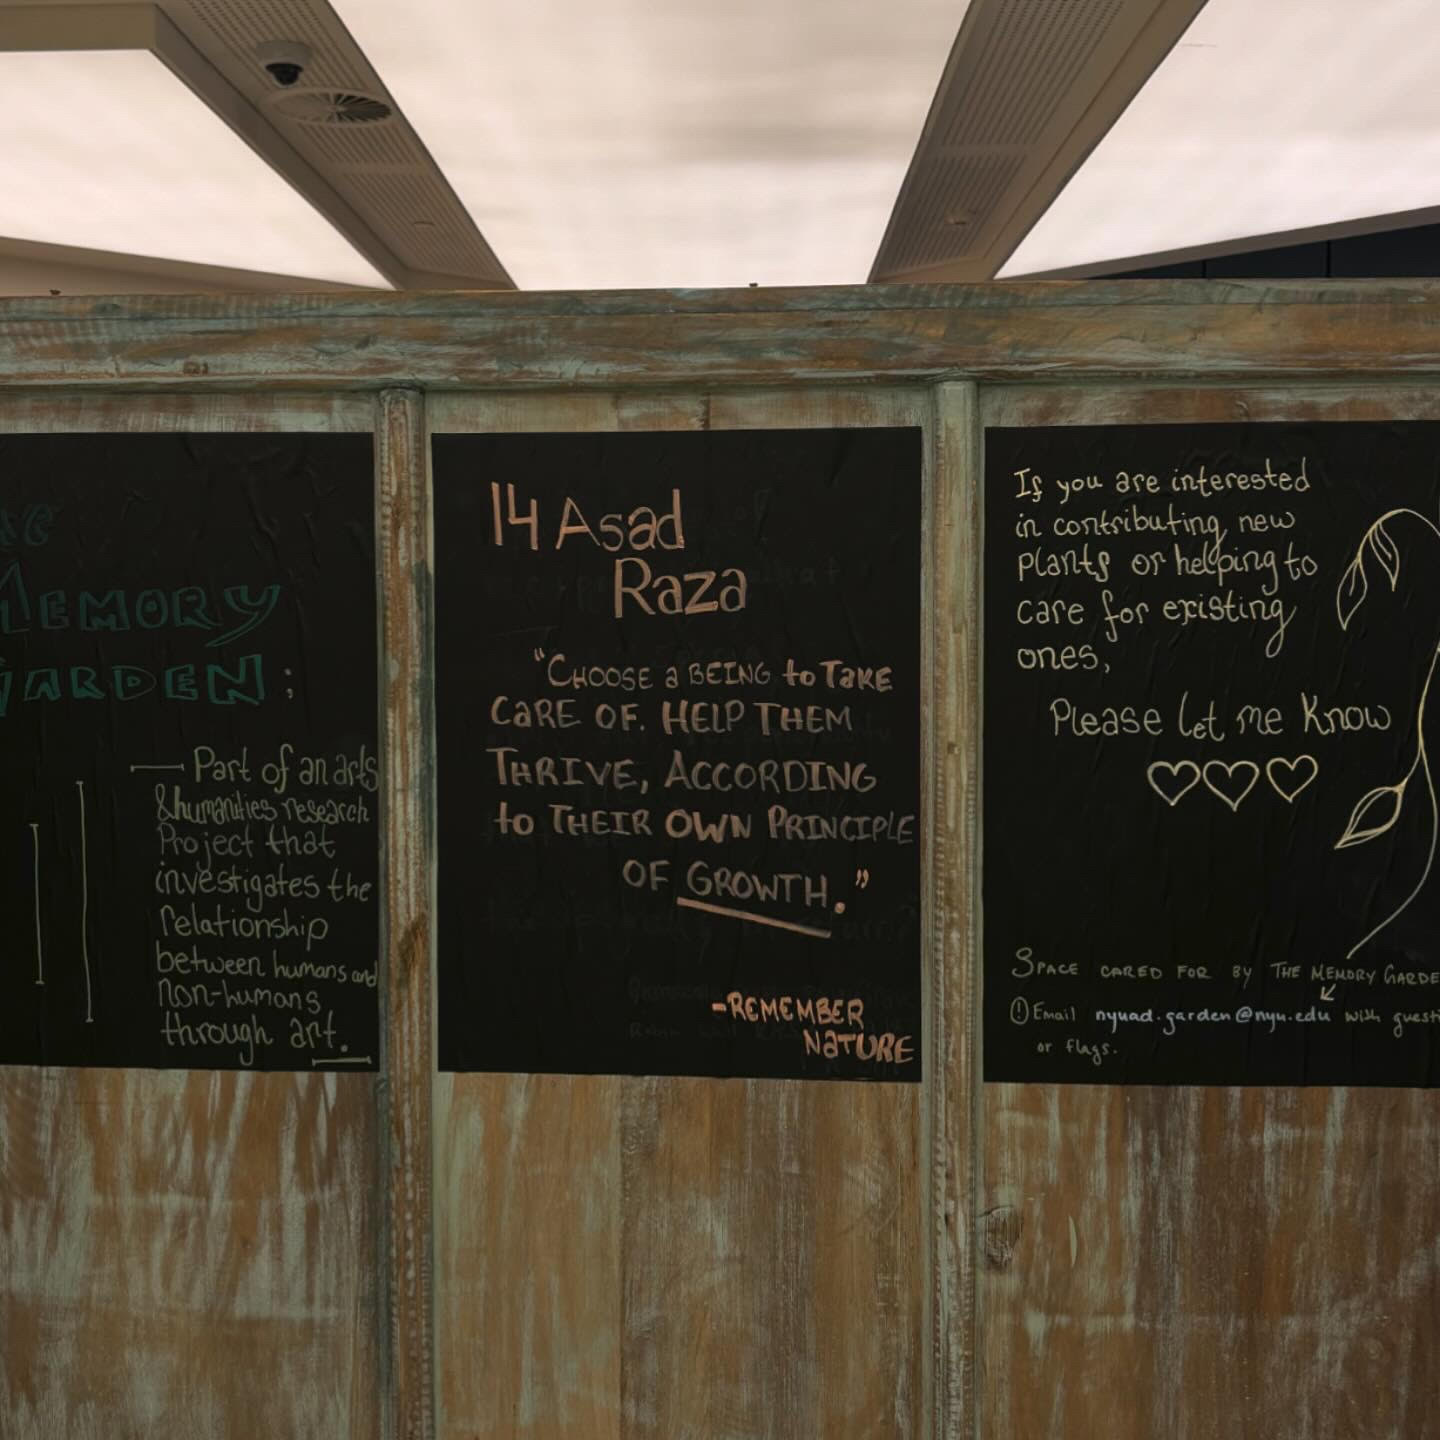 MEMORY
GARDEN:
Part of an arts
& humanities research
Project that
investigates the
relationship
between humans and
non-humans
through art.
14 Asad
Raza
"CHOOSE a BEING to TaKE
CaRE OF. HELP THEM
THRIVE, ACCORDING
to THEIR OWN PRINCIPLE
OF GROWTH."
-REMEMBER
NaTURE
If you are interested
in contributing new
plants or helping to
care for existing
ones,
Please let me Know
SPACE CARED FOR BY THE MEMORY GARDE
! Email nyuad.garden@nyu.edu with questi
or flags.